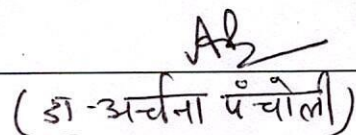 (डा-अर्चना पंचोली)